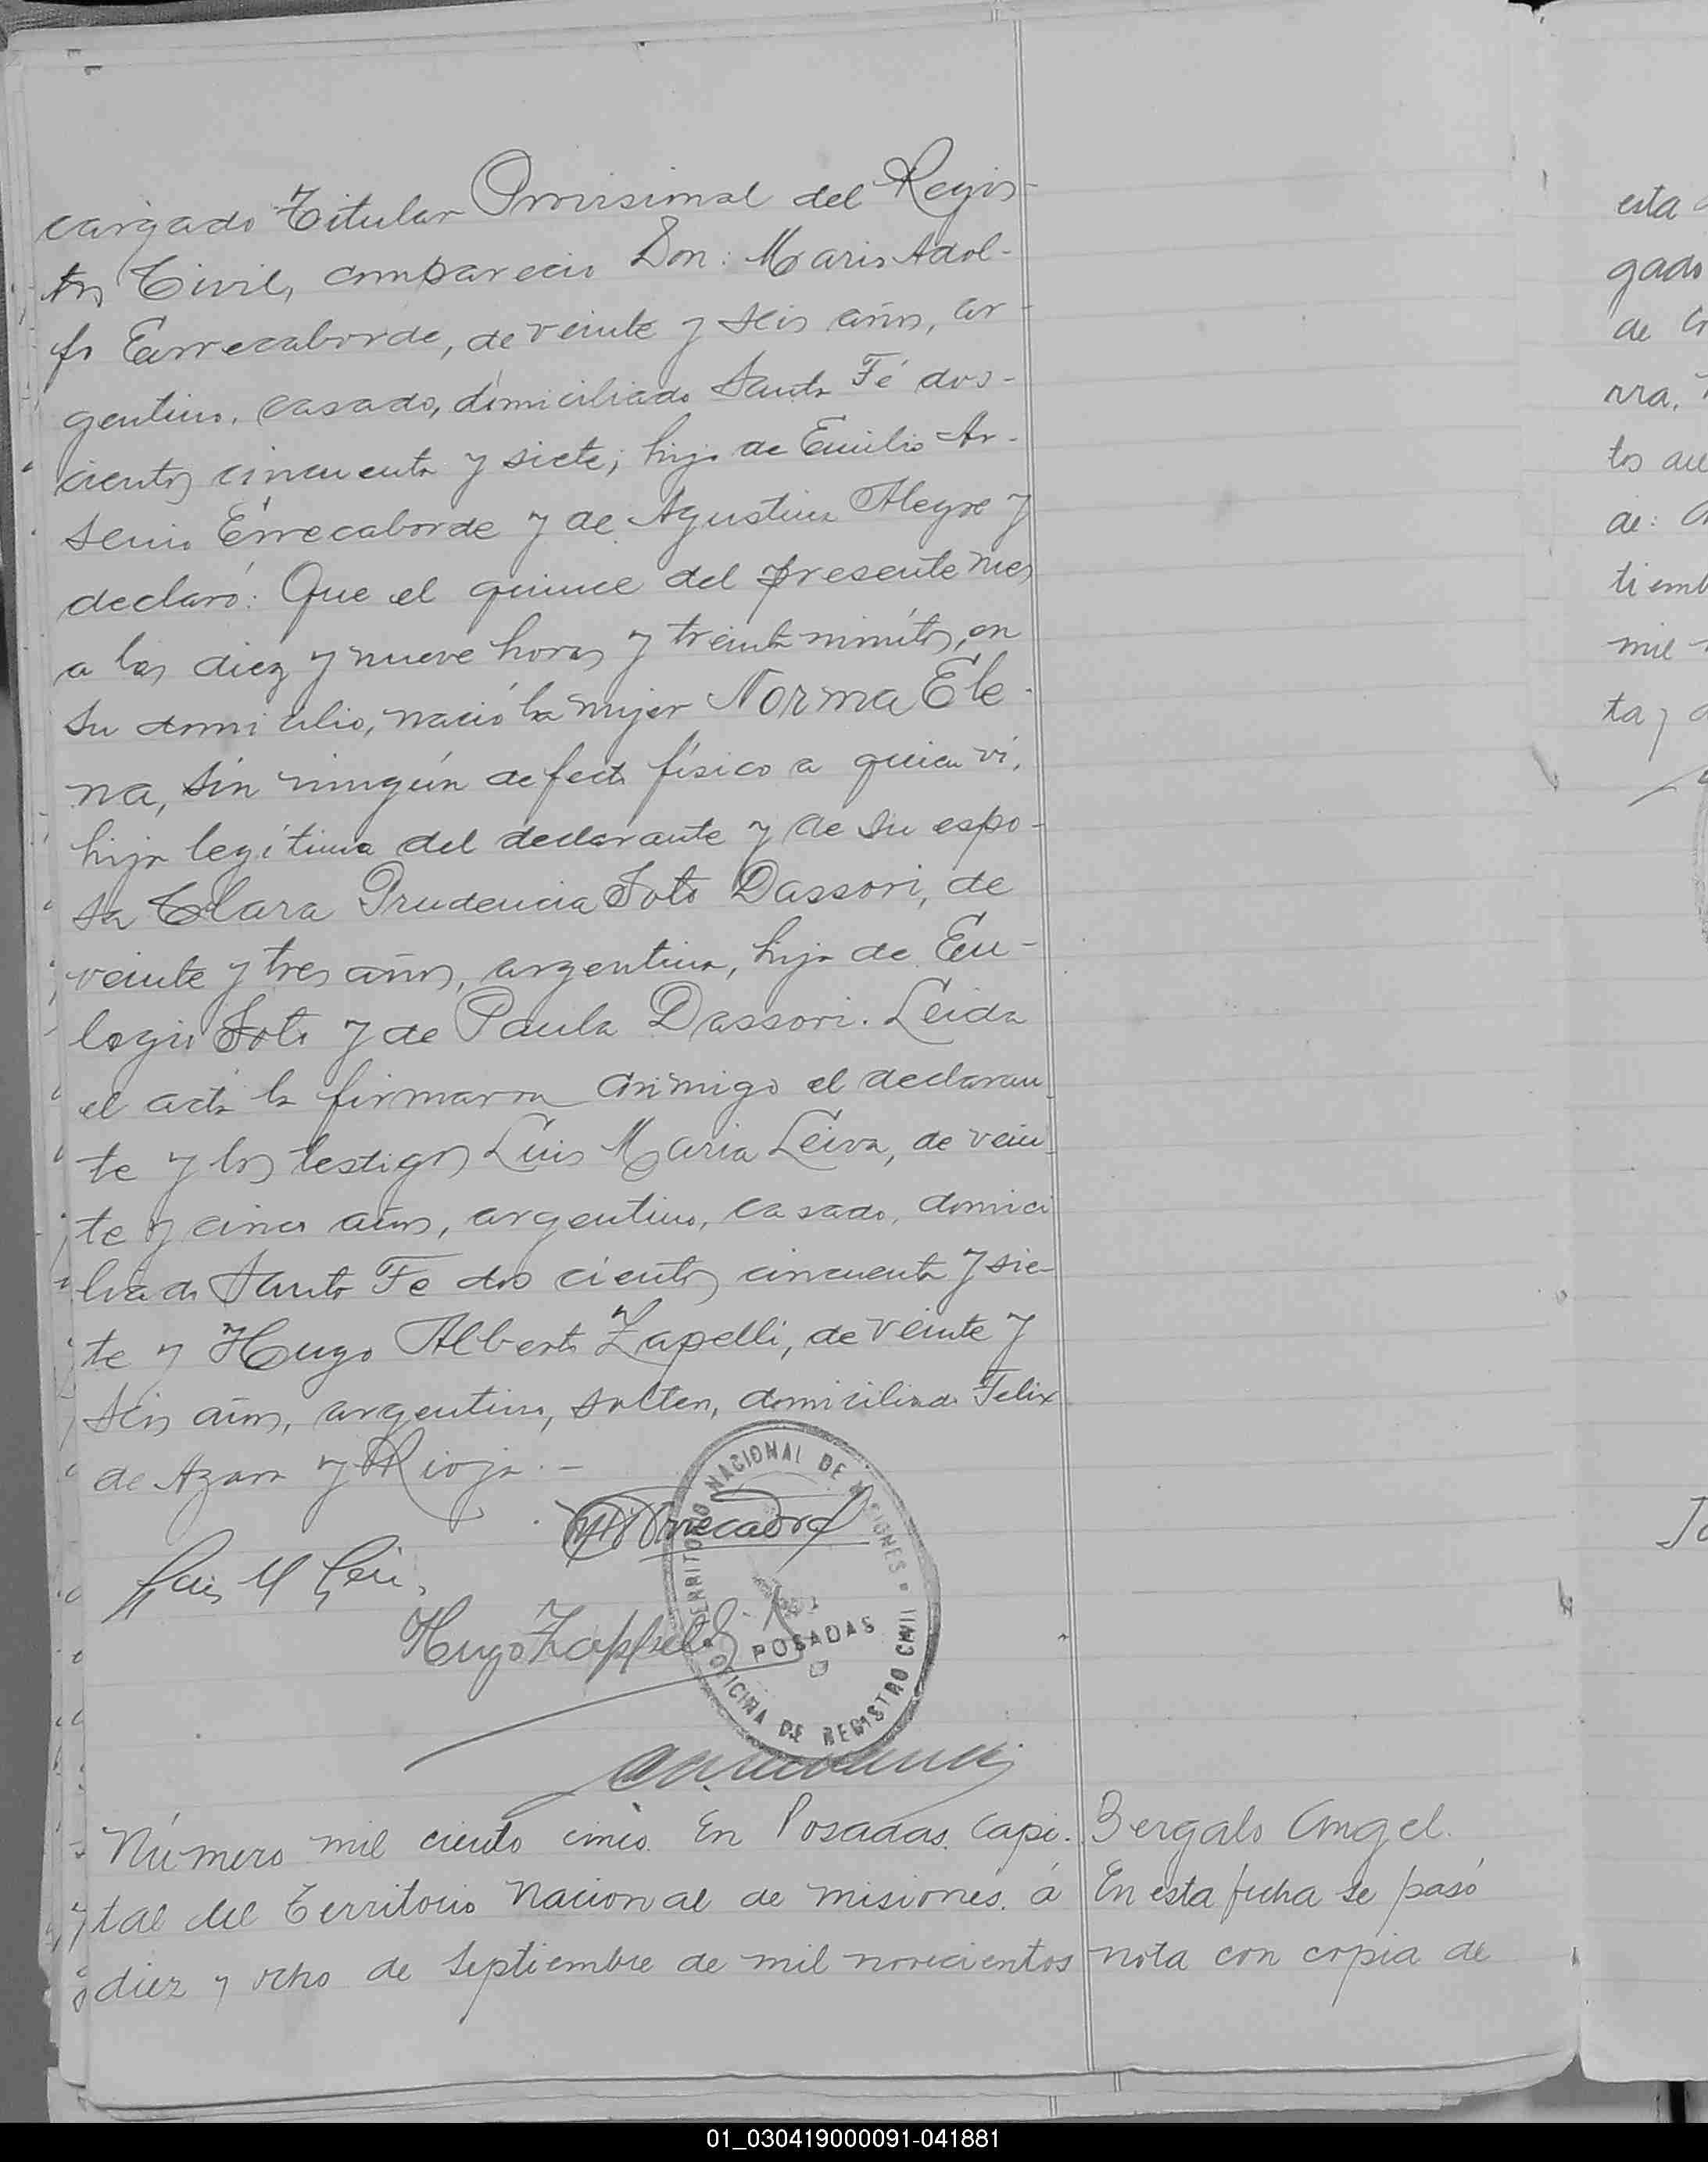 cargado Titular Provisional del Regis-
tro Civil, compareció Don: Mario Adol-
fo Errecaborde, de veinte y seis años, ar-
gentino, casado, domiciliado Santa Fé dos-
cientos cincuenta y siete; hijo de Emilio Ar-
senio Errecaborde y de Agustina Alegre y
declaró: Que el quince del presente mes
a las diez y nueve horas y treinta minutos, en
su domicilio, nació la mujer Norma Ele-
na, sin ningún defecto físico a quien ví,
hija legítima del declarante y de su espo-
sa Clara Prudencia Soto Dassori, de
veinte y tres años, argentina, hija de Eu-
logio Soto y de Paula Dassori. Leida
el acta la firmaron conmigo el declaran-
te y los testigos Luis Maria Leiva, de vein-
te y cinco años, argentino, casado, domici
liado Santa Fe dos cientos cincuenta y sie-
te y Hugo Alberto Zapelli, de veinte y
seis años, argentino, soltero, domiciliado Felix
de Azara y Rioja.-
Luis M Leiv
Hugo Zappelli
TERRITORIO NACIONAL DE MISIONES
POSADAS
OFICINA DE REGISTRO CIVIL
Número mil ciento cinco. En Posadas, Capi-
tal del Territorio Nacional de Misiones, á
diez y ocho de Septiembre de mil novecientos
Bergalo Angel.
En esta fecha se pasó
nota con copia de
esta
gado
de
rra,
tos
de:
tiemb
mil
ta y
01_030419000091-041881